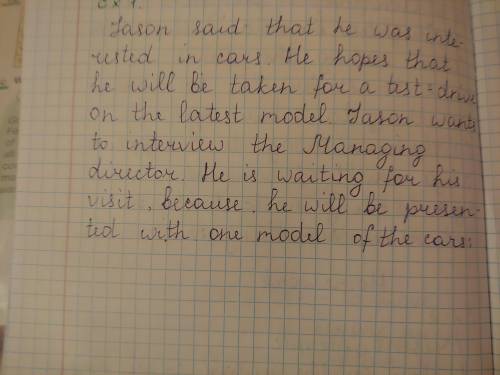 Ex 1.
Jason said that he was inte-
rested in cars. He hopes that
he will be taken for a test-drive
on the latest model. Jason wants
to interview the Managing
director. He is waiting for his
visit, because, he will be presen-
ted with one model of the cars.